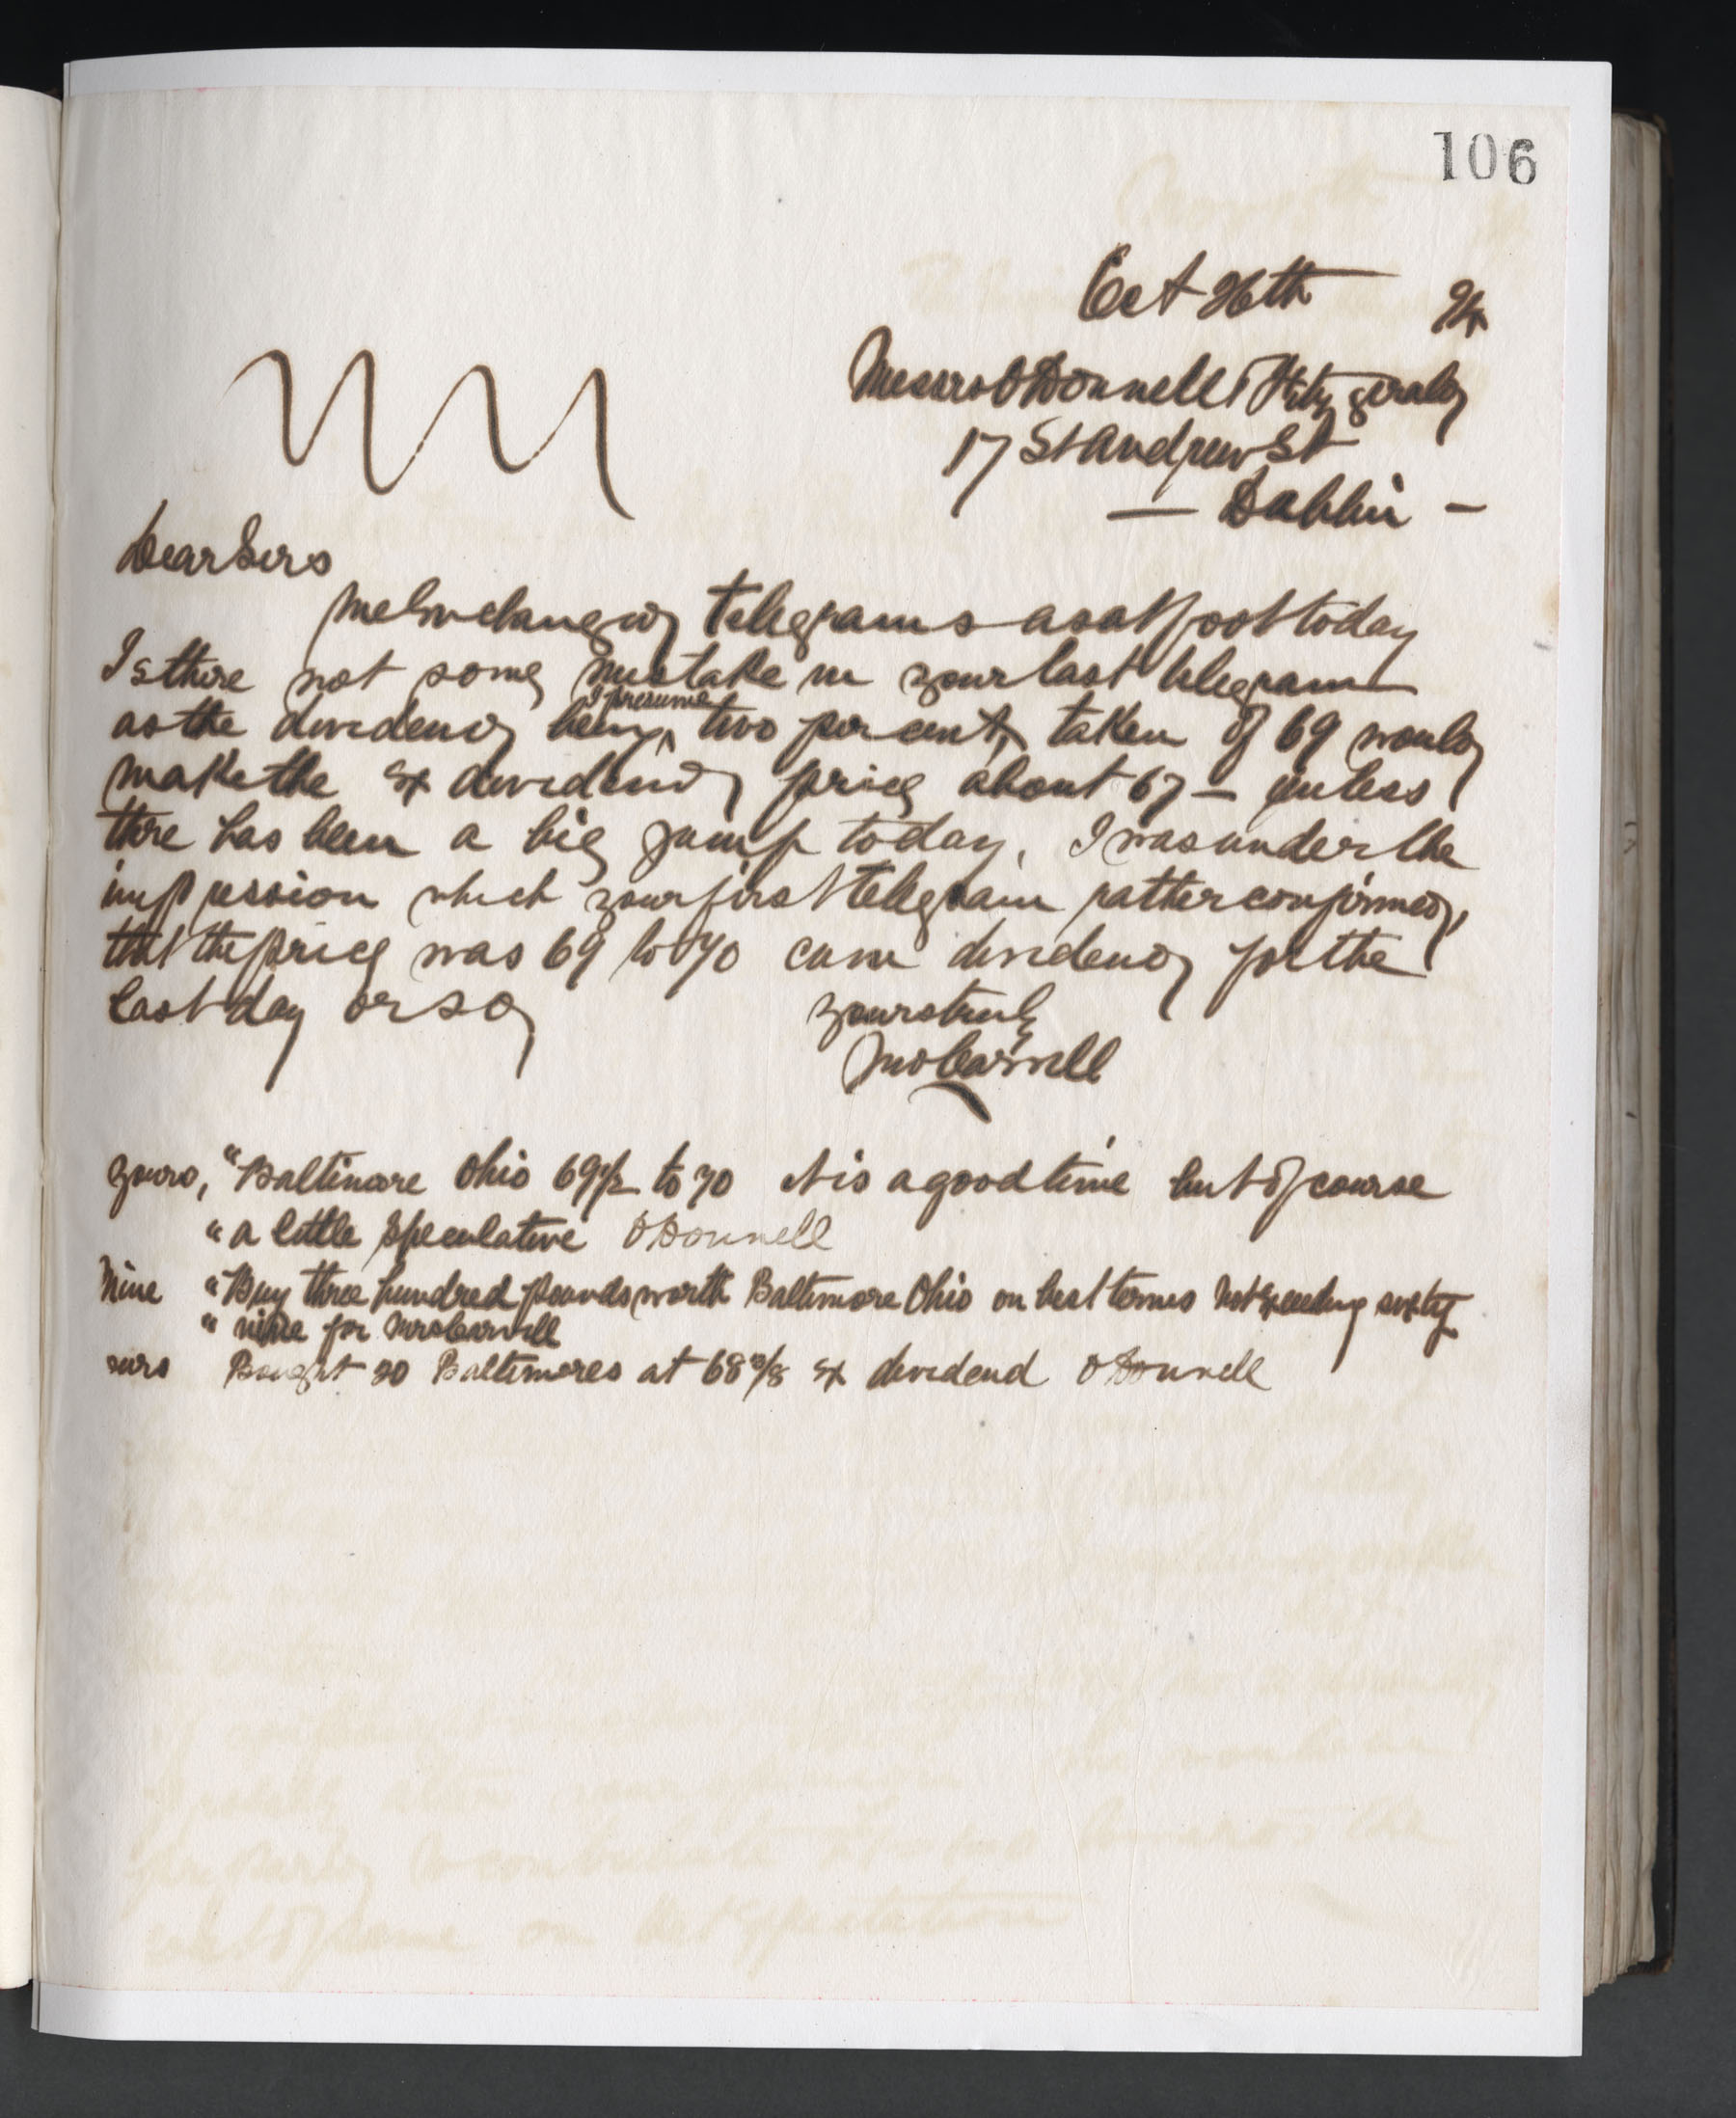 106
Oct 26th 94
Messrs O'Donnell & Fitzgerald
17 St Andrew St
— Dublin —
Dear Sirs
We exchanged telegrams as at foot today
Is there not some mistake in your last telegram
I presume
as the dividend being two per cent, taken off 69 would
make the ex dividend price about 67 — unless
there has been a big jump today. I was under the
impression which your first telegram rather confirmed,
that the price was 69 to 70 cum dividend for the
last day or so
Yours truly
Yours, "Baltimore Ohio 69½ to 70 it is a good time but of course
"a little speculative O'Donnell
Mine "Buy three hundred pounds worth Baltimore Ohio on best terms not exceeding sixty
" nine for
Bought 20 Baltimores at 68 3/8 ex dividend O'Donnell